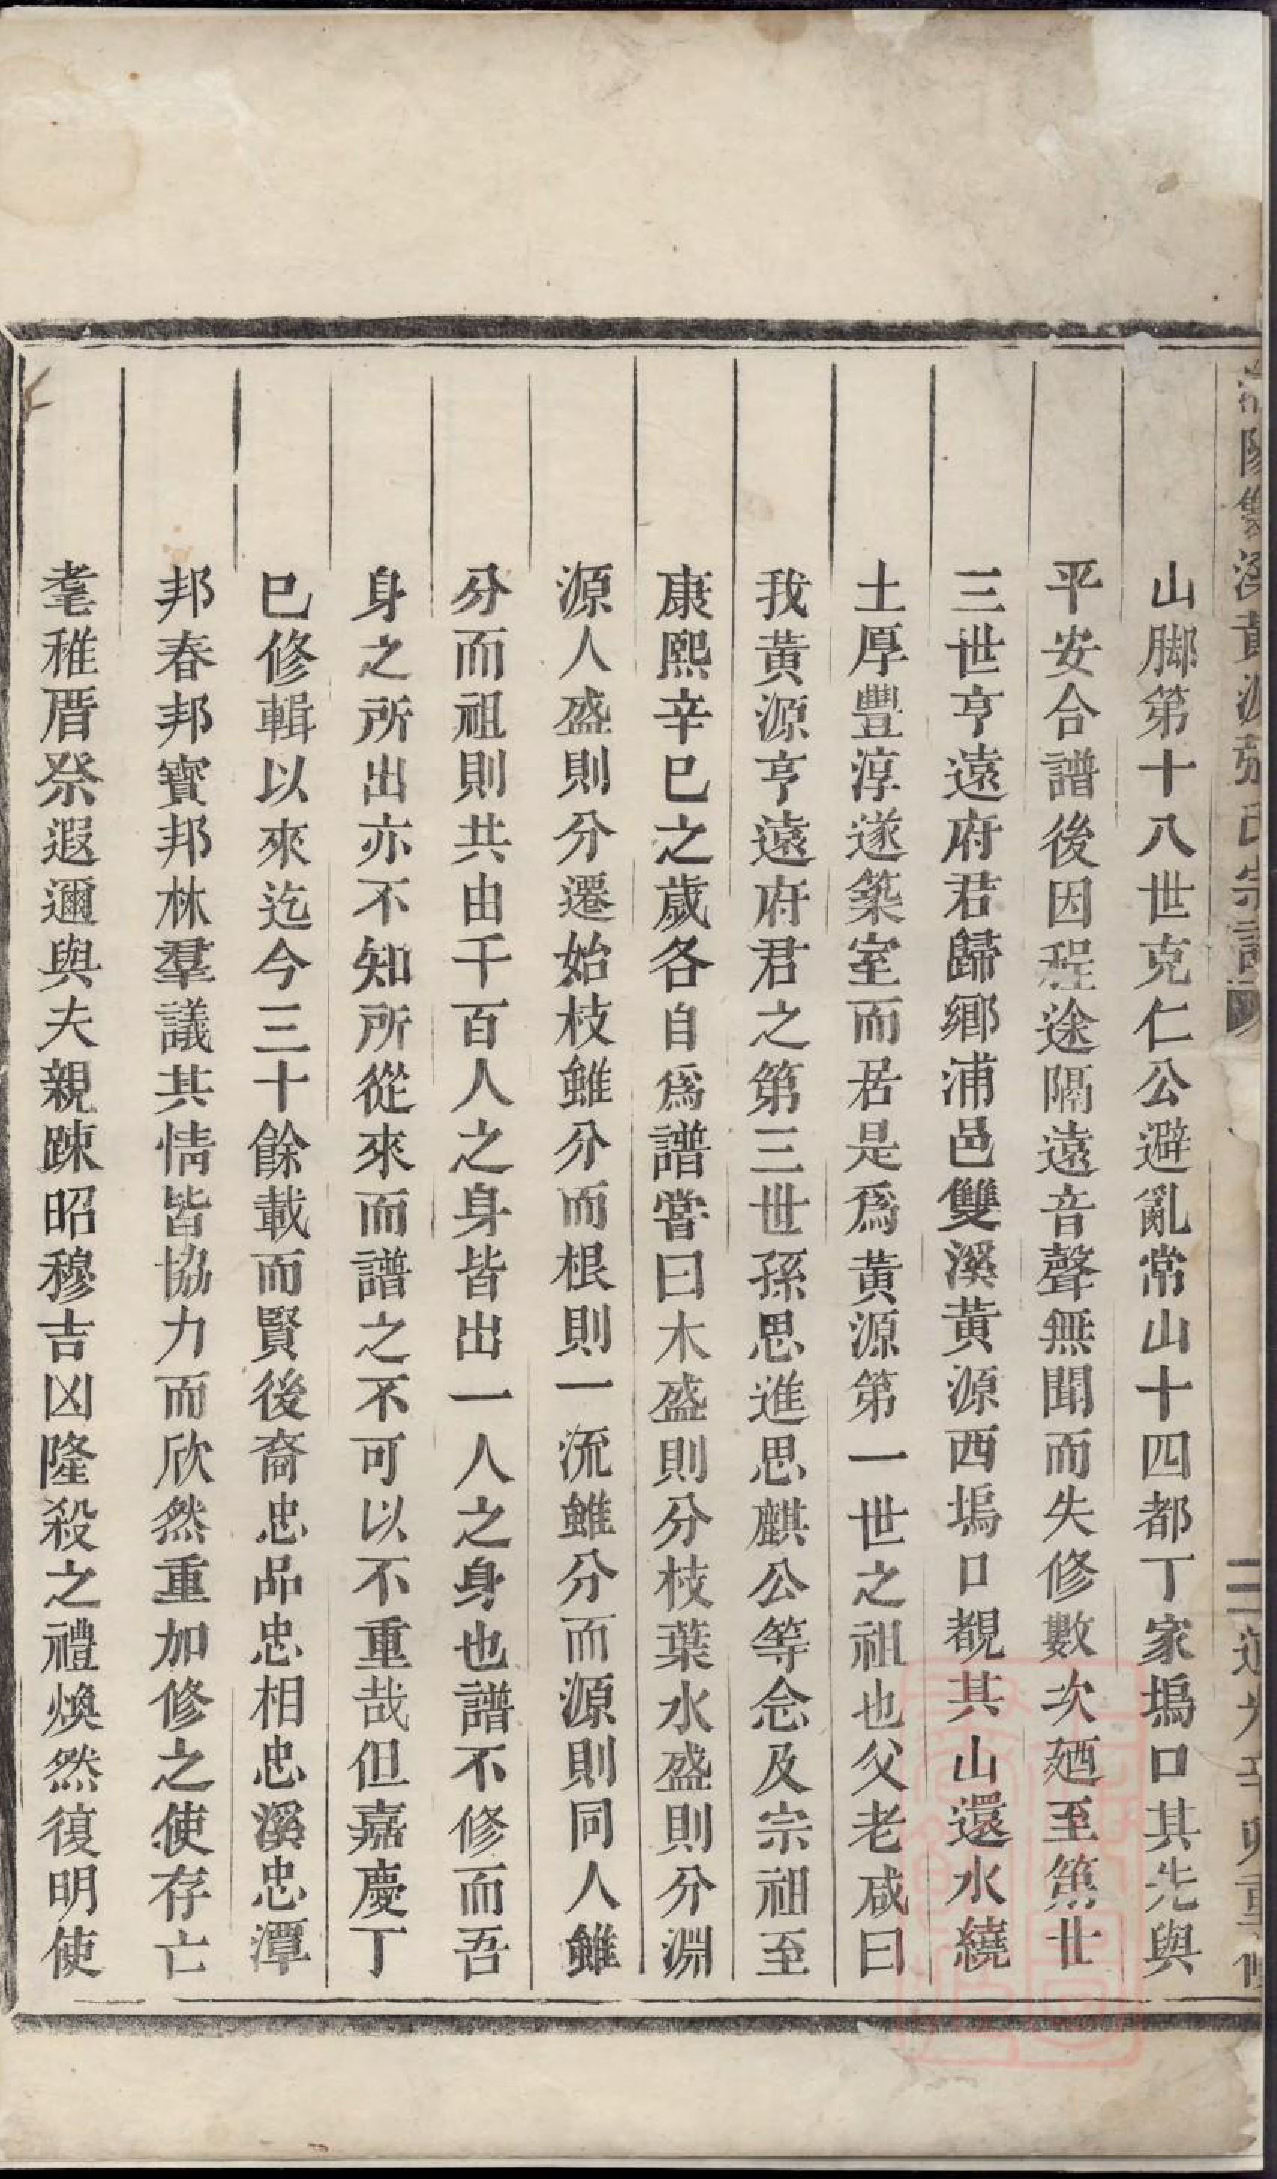 山脚第十八世克仁公避亂常山十四都丁家塢口其先與
平安合譜後因程途隔遠音聲無聞而失修數次廼至第廿
三世亨遠府君歸鄉浦邑雙溪黃源西塢口覩其山還水繞
土厚豐淳遂築室而居是爲黃源第一世之祖也父老咸曰
我黃源亨遠府君之第三世孫思進思麒公等念及宗祖至
康熙辛巳之歲各自爲譜嘗曰木盛則分枝葉水盛則分淵
源人盛則分遷始枝雖分而根則一流雖分而源則同人雖
分而祖則共由千百人之身皆出一人之身也譜不修而吾
身之所出亦不知所從來而譜之不可以不重哉但嘉慶丁
巳修輯以來迄今三十餘載而賢後裔忠品忠相忠溪忠潭
邦春邦寶邦林羣議其情皆協力而欣然重加修之使存亡
耄稚厝祭遐邇與夫親踈昭穆吉凶隆殺之禮煥然復明使
陽雙溪黃源張氏宗譜
二 道光辛卯重修